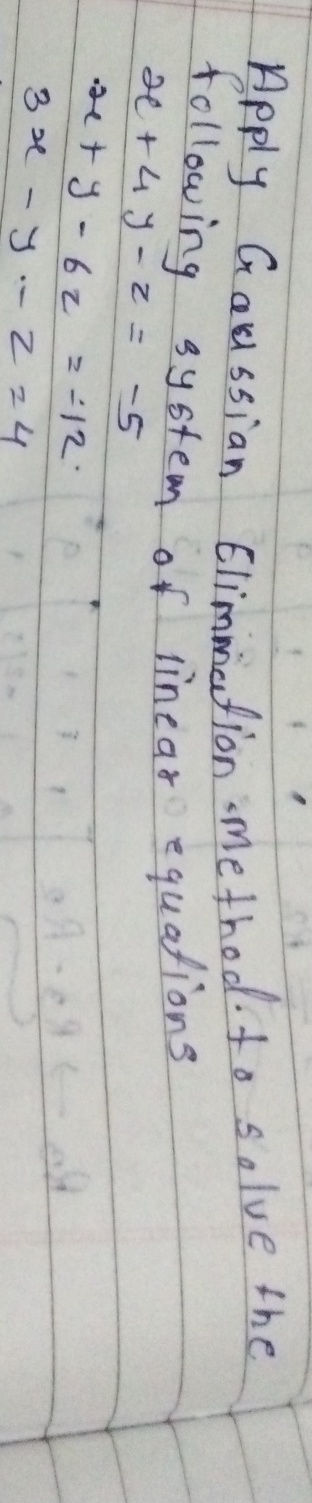 Apply Gaussian Elimination method. to solve the
following system of linear equations
x + 4y - z = -5
x + y - 6z = -12.
3x - y - z = 4